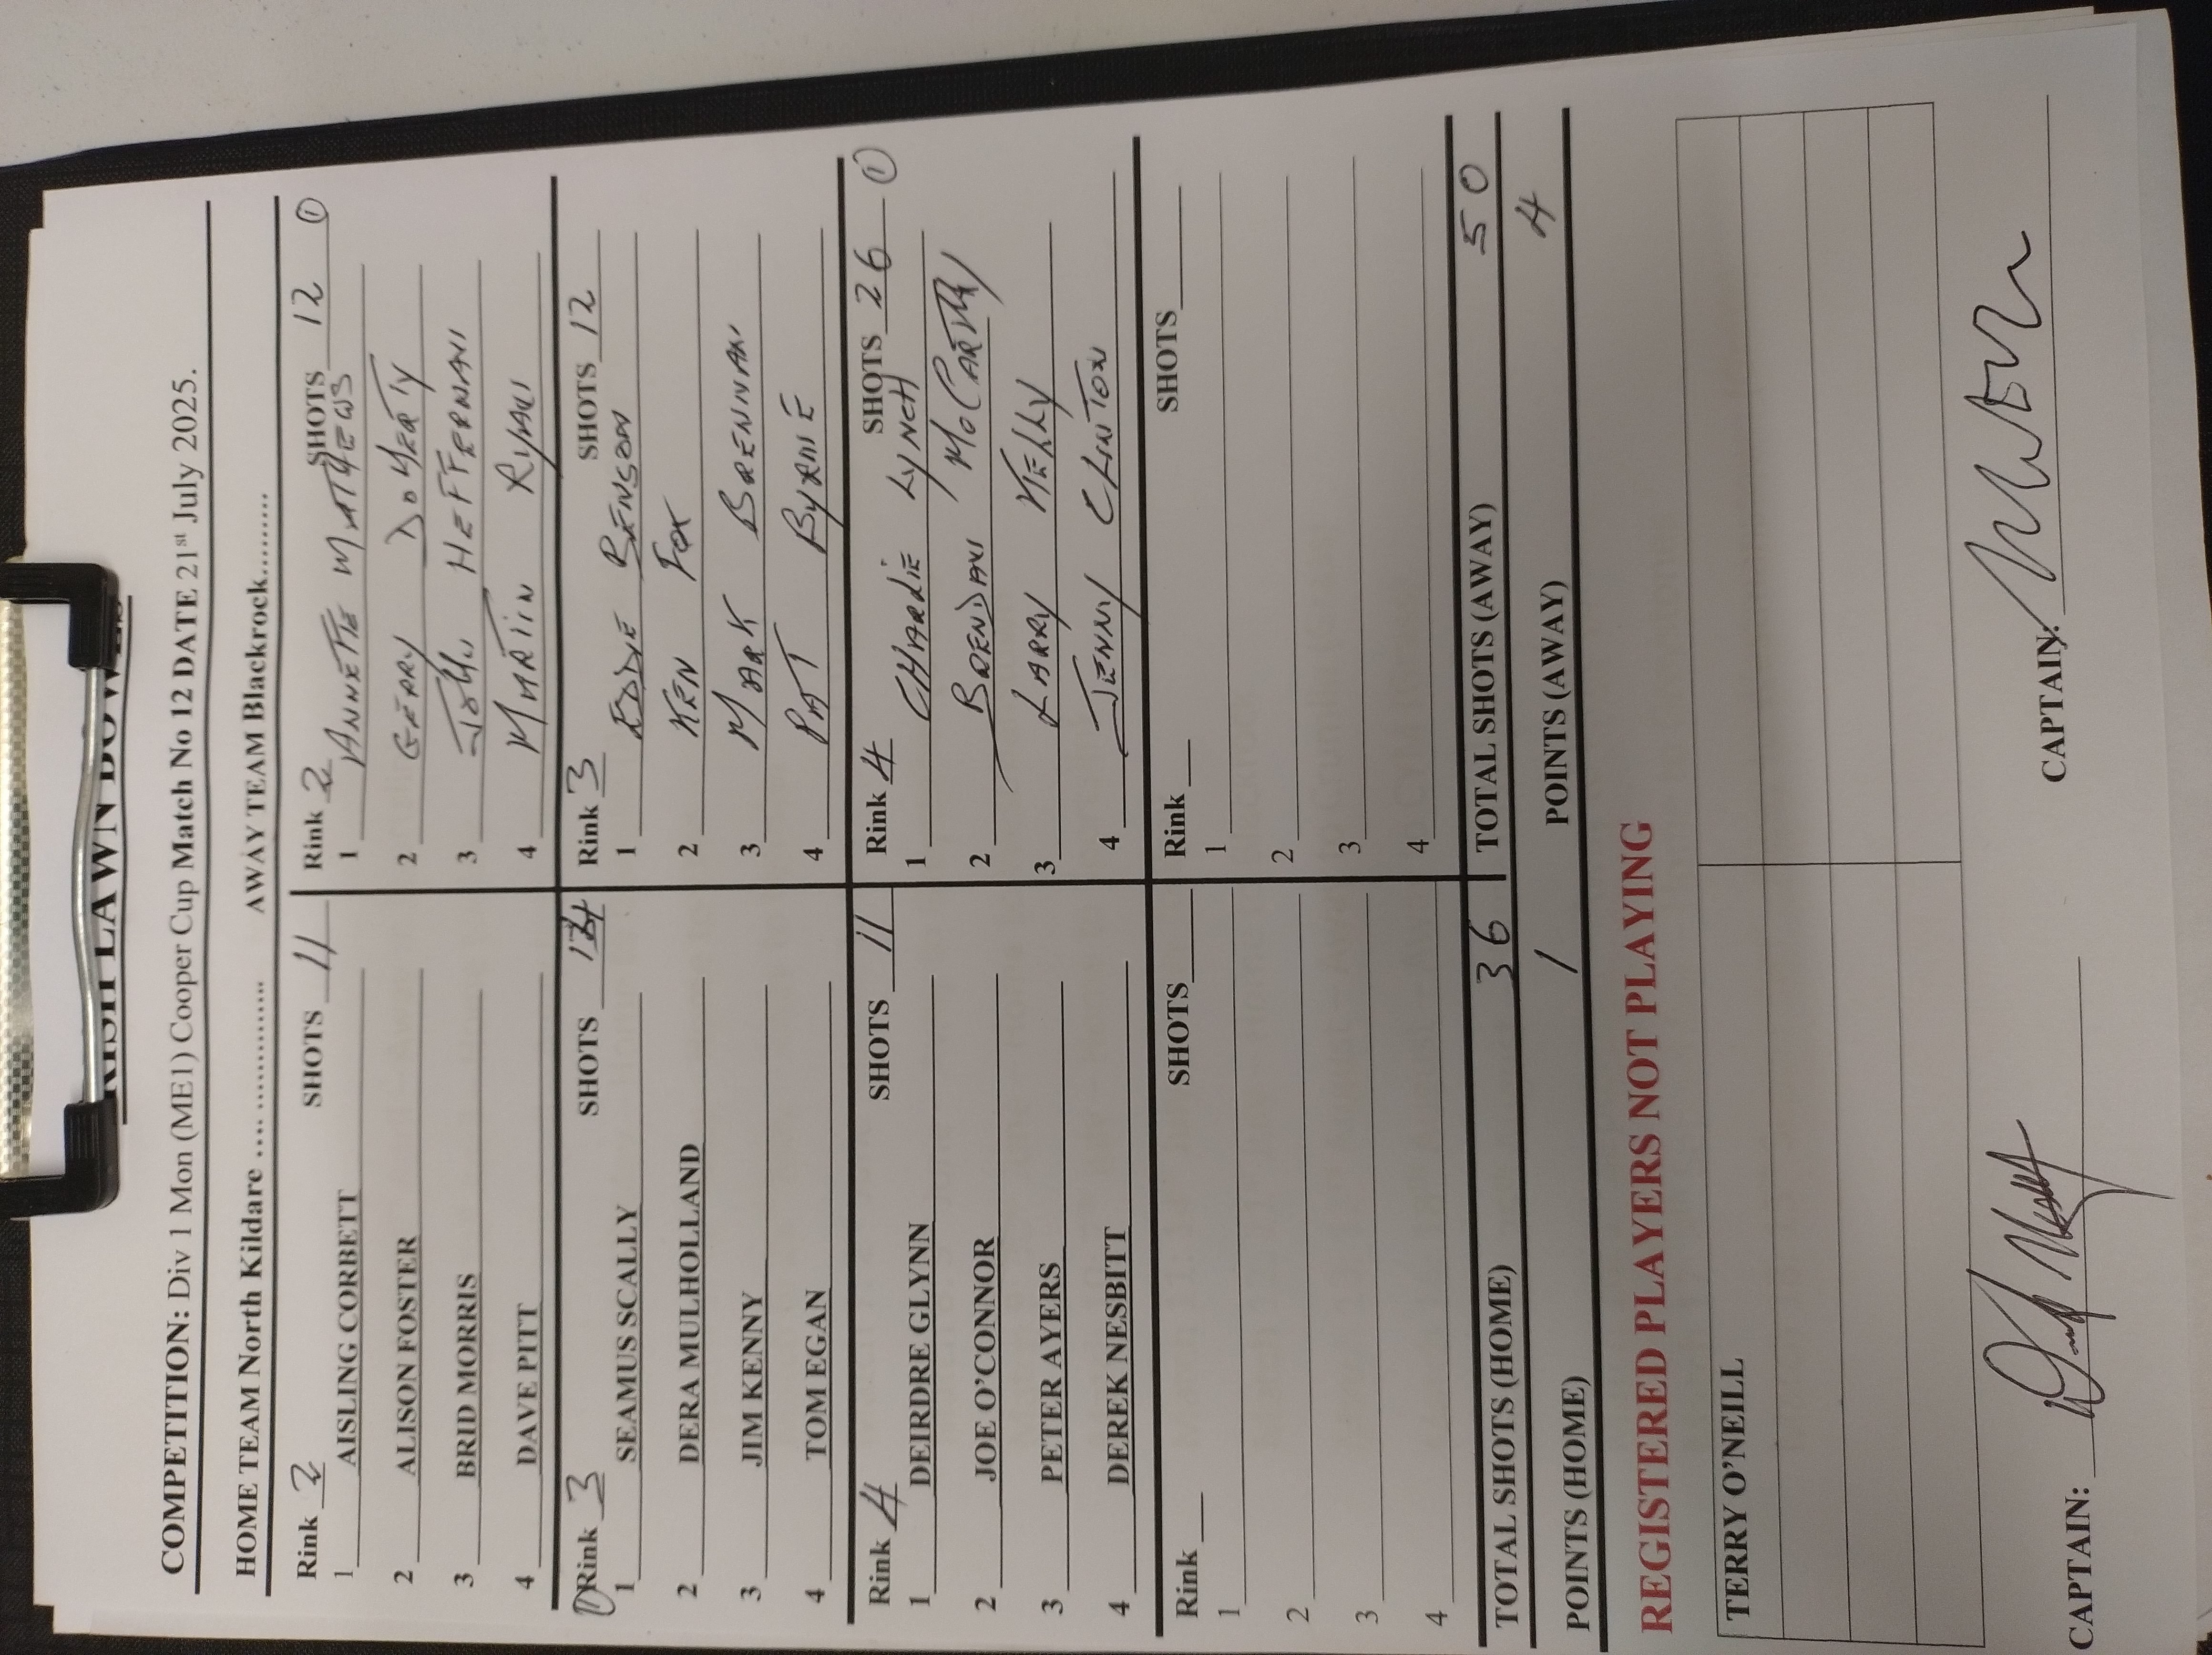 COMPETITION: Div 1 Mon (ME1) Cooper Cup Match No 12 DATE 21st July 2025.
HOME TEAM North Kildare .... ............. AWAY TEAM Blackrock........
Rink 2 SHOTS 11 Rink 2 SHOTS 12 ①
1 AISLING CORBETT 1 ANNETTE MATHEWS
2 ALISON FOSTER 2 GERRY DOHERTY
3 BRID MORRIS 3 JOHN HEFFERNAN
4 DAVE PITT 4 MARTIN RYAN
① Rink 3 SHOTS 14 Rink 3 SHOTS 12
1 SEAMUS SCALLY 1 EDDIE BENSON
2 DERA MULHOLLAND 2 KEN FOX
3 JIM KENNY 3 MARK BRENNAN
4 TOM EGAN 4 PAT BYRNE
Rink 4 SHOTS 11 Rink 4 SHOTS 26 ①
1 DEIRDRE GLYNN 1 CHARLIE LYNCH
2 JOE O'CONNOR 2 BRENDAN McCARTHY
3 PETER AYERS 3 LARRY KELLY
4 DEREK NESBITT 4 JENNY CLINTON
Rink SHOTS Rink SHOTS
1 1
2 2
3 3
4 4
TOTAL SHOTS (HOME) 36 TOTAL SHOTS (AWAY) 50
POINTS (HOME) 1 POINTS (AWAY) 4
REGISTERED PLAYERS NOT PLAYING
TERRY O'NEILL
CAPTAIN: CAPTAIN: